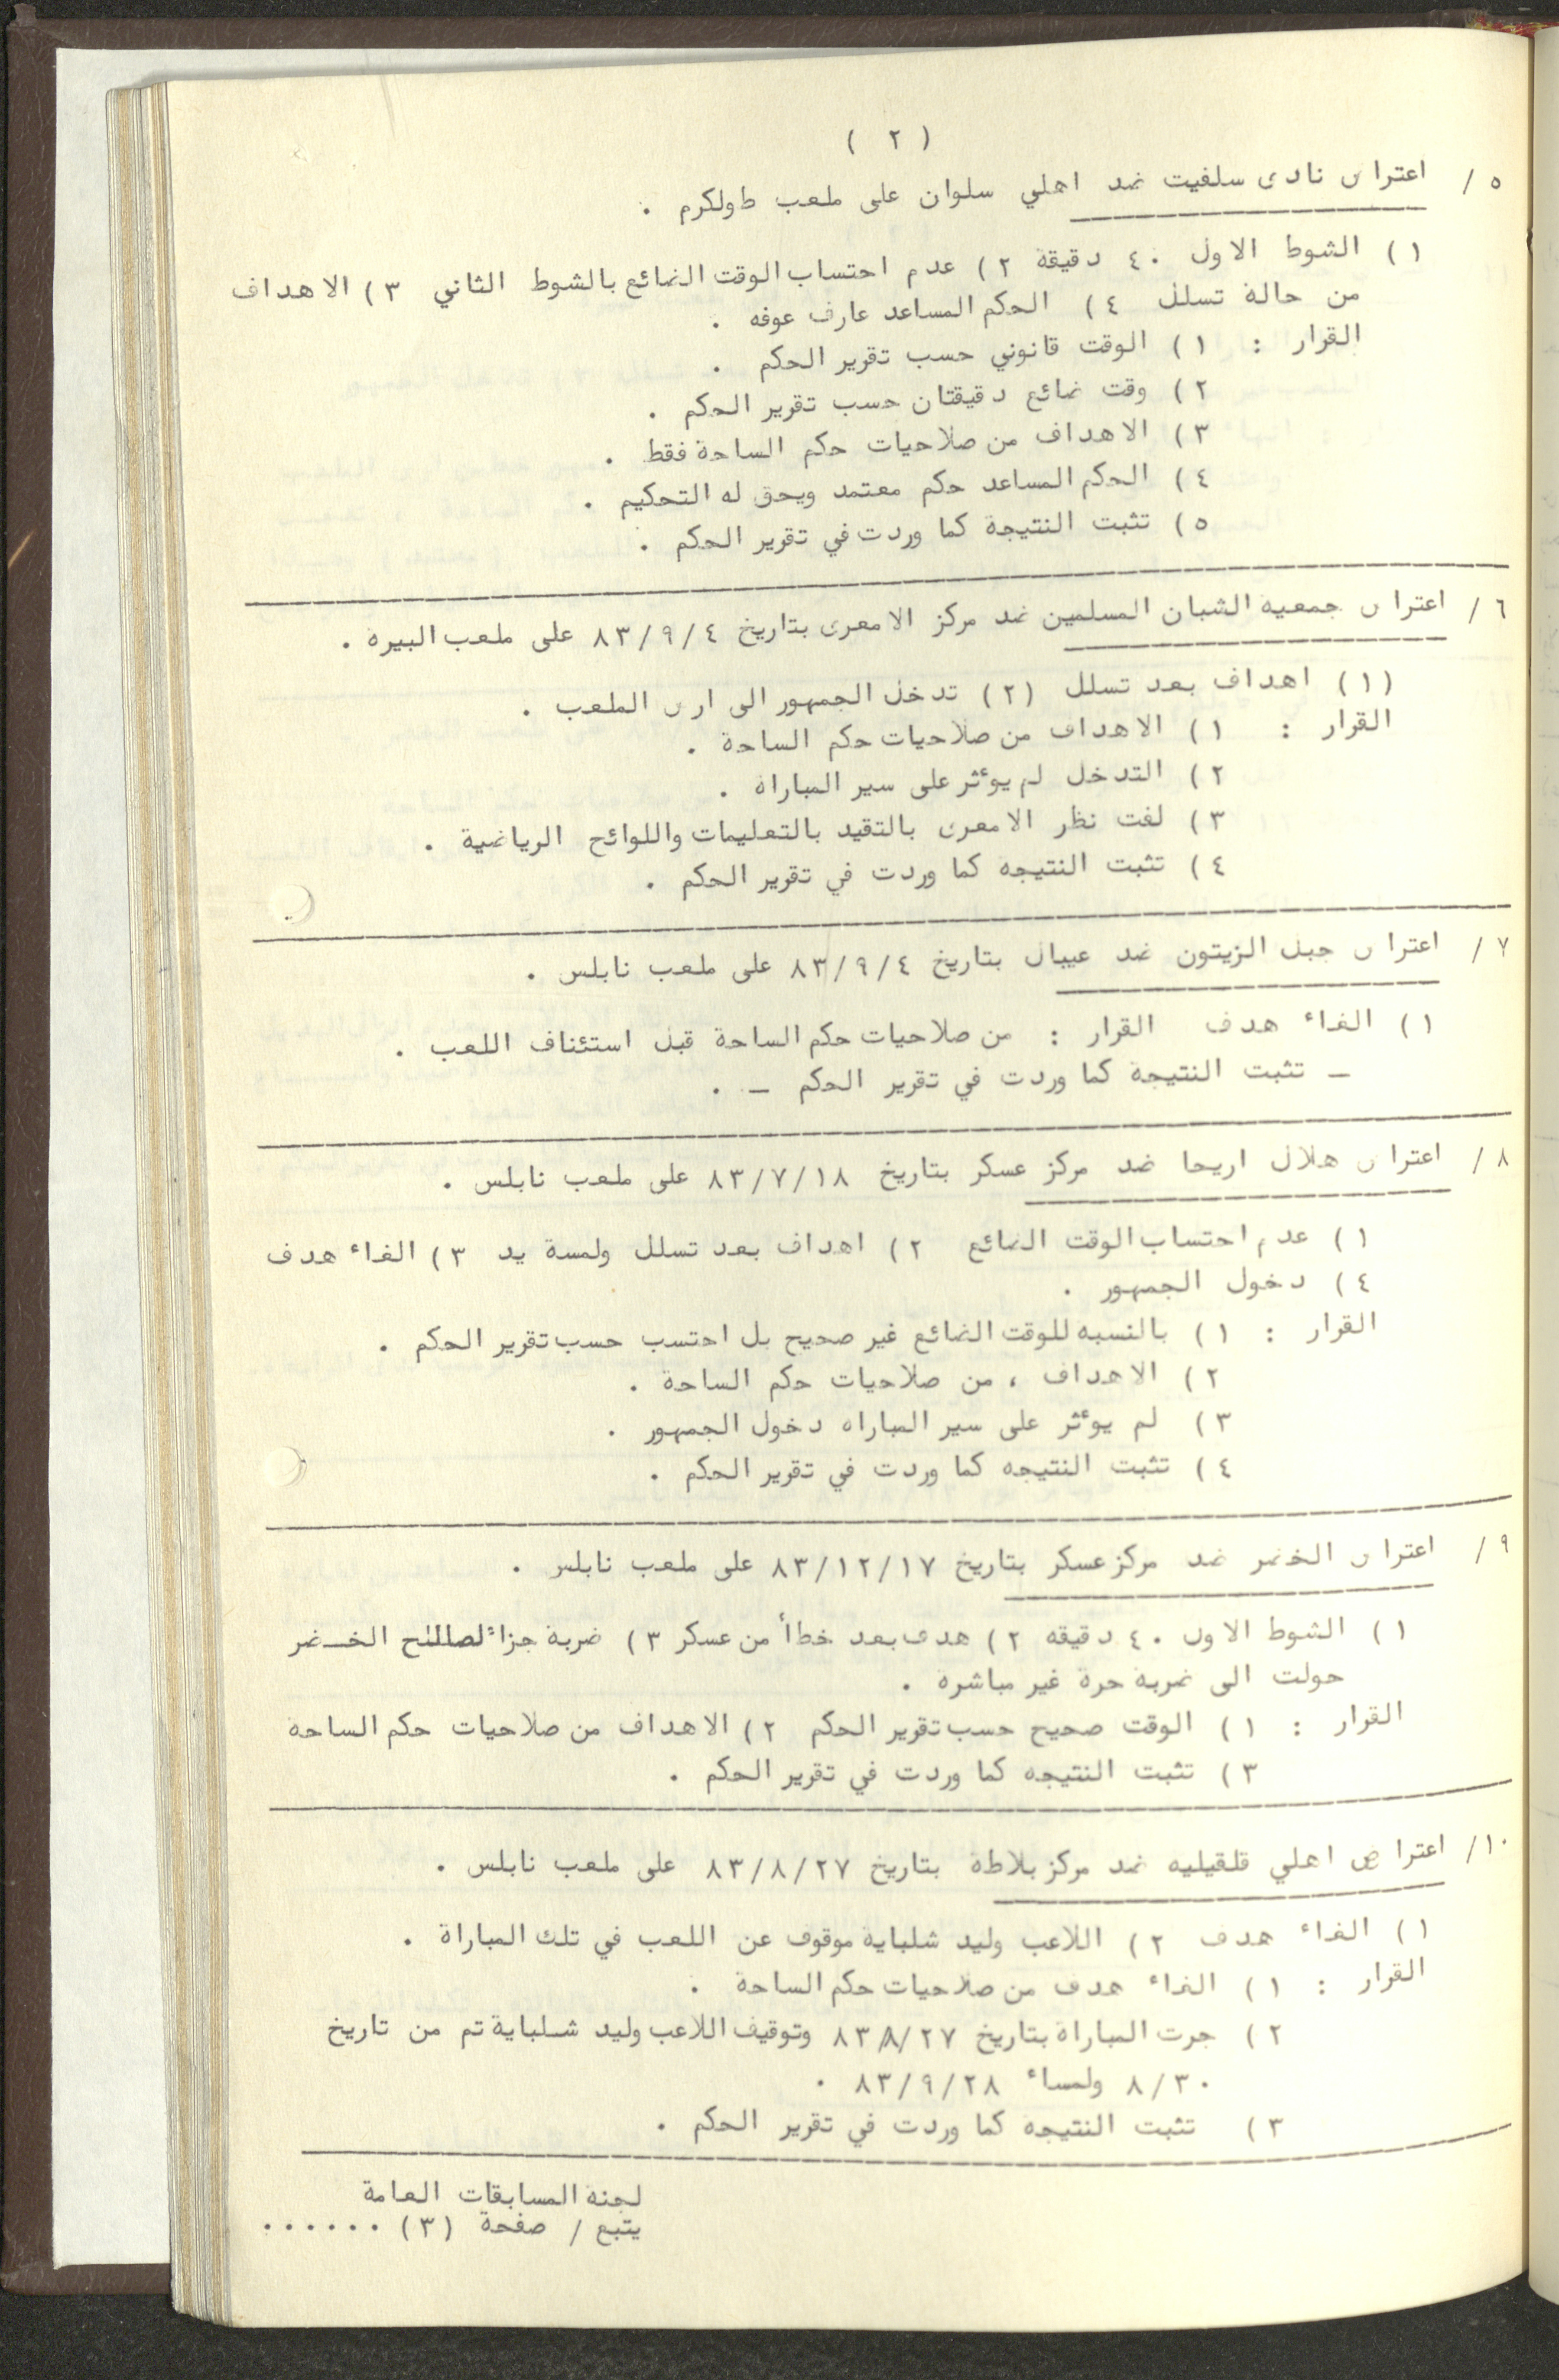 ( ٢ )
٥ / اعتراض نادى سلفيت ضد اهلي سلوان على ملعب طولكرم .
١ ) الشوط الاول ٤٠ دقيقة ٢ ) عدم احتساب الوقت الضائع بالشوط الثاني ٣ ) الاهداف
من حالة تسلل ٤ ) الحكم المساعد عارف عوفه .
القرار : ١ ) الوقت قانوني حسب تقرير الحكم .
٢ ) وقت ضائع دقيقتان حسب تقرير الحكم .
٣ ) الاهداف من صلاحيات حكم الساحة فقط .
٤ ) الحكم المساعد حكم معتمد ويحق له التحكيم .
٥ ) تثبت النتيجة كما وردت في تقرير الحكم .
٦ / اعتراض جمعيه الشبان المسلمين ضد مركز الامعرى بتاريخ ٨٣/٩/٤ على ملعب البيره .
( ١ ) اهداف بعد تسلل ( ٢ ) تدخل الجمهور الى ارض الملعب .
القرار : ١ ) الاهداف من صلاحيات حكم الساحة .
٢ ) التدخل لم يوءثر على سير المباراة .
٣ ) لفت نظر الامعرى بالتقيد بالتعليمات واللوائح الرياضية .
٤ ) تثبت النتيجه كما وردت في تقرير الحكم .
٧ / اعتراض جبل الزيتون ضد عيبال بتاريخ ٨٣/٩/٤ على ملعب نابلس .
١ ) الغاء هدف القرار : من صلاحيات حكم الساحة قبل استئناف اللعب .
– تثبت النتيجة كما وردت في تقرير الحكم – .
٨ / اعتراض هلال اريحا ضد مركز عسكر بتاريخ ٨٣/٧/١٨ على ملعب نابلس .
١ ) عدم احتساب الوقت الضائع ٢ ) اهداف بعد تسلل ولمسة يد ٣ ) الغاء هدف
٤ ) دخول الجمهور .
القرار : ١ ) بالنسبه للوقت الضائع غير صحيح بل احتسب حسب تقرير الحكم .
٢ ) الاهداف ، من صلاحيات حكم الساحة .
٣ ) لم يوءثر على سير المباراه دخول الجمهور .
٤ ) تثبت النتيجه كما وردت في تقرير الحكم .
٩ / اعتراض الخضر ضد مركز عسكر بتاريخ ٨٣/١٢/١٧ على ملعب نابلس .
١ ) الشوط الاول ٤٠ دقيقه ٢ ) هدف بعد خطأ من عسكر ٣ ) ضربة جزاء لصالح الخضر
حولت الى ضربة حرة غير مباشره .
القرار : ١ ) الوقت صحيح حسب تقرير الحكم ٢ ) الاهداف من صلاحيات حكم الساحة
٣ ) تثبت النتيجه كما وردت في تقرير الحكم .
١٠/ اعتراض اهلي قلقيليه ضد مركز بلاطة بتاريخ ٨٣/٨/٢٧ على ملعب نابلس .
١ ) الغاء هدف ٢ ) اللاعب وليد شلباية موقوف عن اللعب في تلك المباراة .
القرار : ١ ) الغاء هدف من صلاحيات حكم الساحة .
٢ ) جرت المباراة بتاريخ ٨٣/٨/٢٧ وتوقيف اللاعب وليد شلباية تم من تاريخ
٨/٣٠ ولمساء ٨٣/٩/٢٨ .
٣ ) تثبت النتيجة كما وردت في تقرير الحكم .
لجنة المسابقات العامة
يتبع / صفحة (٣) ......